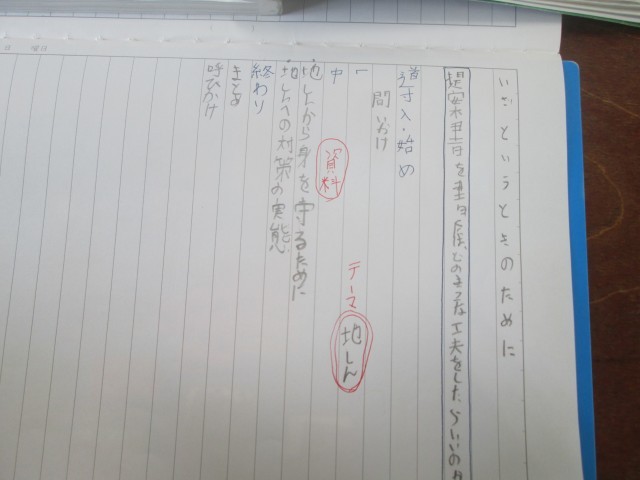 いざというときのために
どのような工夫をしたらいいの
導入・始め
問いかけ
テーマ
地しん
中
資料
・地しんから身を守るために
・地しんへの対策の実態
終わり
まとめ
呼びかけ